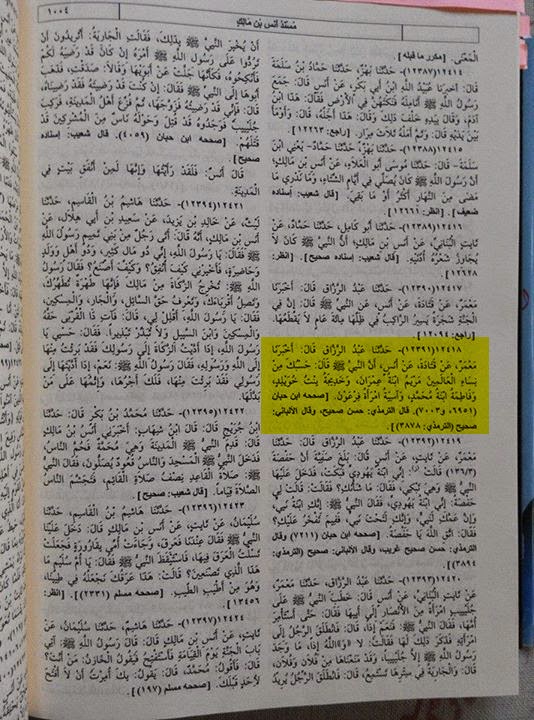 مُسْنَدُ أَنَسِ بْنِ مَالِكٍ
١٠٠٤
الْمَعْنَى. [مكرر ما قبله].
١٢٤١٤(١٢٣٨٧)- حَدَّثَنَا بَهْزٌ، حَدَّثَنَا حَمَّادُ بْنُ سَلَمَةَ
قَالَ: أَخْبَرَنَا عُبَيْدُ اللَّهِ بْنُ أَبِي بَكْرٍ، عَنْ أَنَسٍ قَالَ: جَمَعَ
رَسُولُ اللَّهِ ﷺ أَنَامِلَهُ فَنَكَتَهُنَّ فِي الْأَرْضِ فَقَالَ: هَذَا ابْنُ
آدَمَ، وَقَالَ بِيَدِهِ خَلْفَ ذَلِكَ وَقَالَ: هَذَا أَجَلُهُ، قَالَ: وَأَوْمَأَ
بَيْنَ يَدَيْهِ قَالَ: وَثَمَّ أَمَلُهُ ثَلَاثَ مِرَارٍ. [راجع: ١٢٢٦٣].
١٢٤١٥(١٢٣٨٨)- حَدَّثَنَا بَهْزٌ، حَدَّثَنَا حَمَّادٌ- يَعْنِي ابْنَ
سَلَمَةَ- قَالَ: حَدَّثَنَا مُوسَى أَبُو الْعَلَاءِ، عَنْ أَنَسِ بْنِ مَالِكٍ؛
أَنَّ رَسُولَ اللَّهِ ﷺ كَانَ يُصَلِّي فِي أَيَّامِ الشِّتَاءِ، وَمَا نَدْرِي مَا
مَضَى مِنَ النَّهَارِ أَكْثَرُ أَوْ مَا بَقِيَ. [قال شعيب: إسناده
ضعيف]. [انظر: ١٢٦٦١].
١٢٤١٦(١٢٣٨٩)- حَدَّثَنَا أَبُو كَامِلٍ، حَدَّثَنَا حَمَّادٌ، عَنْ
ثَابِتٍ الْبُنَانِيِّ، عَنْ أَنَسِ بْنِ مَالِكٍ؛ أَنَّ النَّبِيَّ ﷺ كَانَ لَا
يُجَاوِزُ شَعَرُهُ أُذُنَيْهِ. [قال شعيب: إسناده صحيح]. [انظر:
١٢٦٢٨].
١٢٤١٧(١٢٣٩٠)- حَدَّثَنَا عَبْدُ الرَّزَّاقِ قَالَ: أَخْبَرَنَا
مَعْمَرٌ، عَنْ قَتَادَةَ، عَنْ أَنَسٍ، عَنِ النَّبِيِّ ﷺ قَالَ: إِنَّ فِي
الْجَنَّةِ شَجَرَةً يَسِيرُ الرَّاكِبُ فِي ظِلِّهَا مِائَةَ عَامٍ لَا يَقْطَعُهَا.
[راجع: ١٢٠٩٤].
١٢٤١٨(١٢٣٩١)- حَدَّثَنَا عَبْدُ الرَّزَّاقِ قَالَ: أَخْبَرَنَا
مَعْمَرٌ، عَنْ قَتَادَةَ، عَنْ أَنَسٍ، أَنَّ النَّبِيَّ ﷺ قَالَ: حَسْبُكَ مِنْ
نِسَاءِ الْعَالَمِينَ مَرْيَمُ ابْنَةُ عِمْرَانَ، وَخَدِيجَةُ بِنْتُ خُوَيْلِدٍ،
وَفَاطِمَةُ ابْنَةُ مُحَمَّدٍ، وَآسِيَةُ امْرَأَةُ فِرْعَوْنَ. [صححه ابن حبان
(٦٩٥١ و٧٠٠٣). قال الترمذي: حسن صحيح، وقال الألباني:
صحيح (الترمذي: ٣٨٧٨)].
١٢٤١٩(١٢٣٩٢)- حَدَّثَنَا عَبْدُ الرَّزَّاقِ، حَدَّثَنَا مَعْمَرٌ،
عَنْ ثَابِتٍ، عَنْ أَنَسٍ قَالَ: بَلَغَ صَفِيَّةَ أَنَّ حَفْصَةَ
(١٣٦/٣) قَالَتْ: إِنِّي ابْنَةُ يَهُودِيٍّ فَبَكَتْ، فَدَخَلَ عَلَيْهَا
النَّبِيُّ ﷺ وَهِيَ تَبْكِي، فَقَالَ: مَا شَأْنُكِ؟ فَقَالَتْ: قَالَتْ لِي
حَفْصَةُ: إِنِّي ابْنَةُ يَهُودِيٍّ، فَقَالَ النَّبِيُّ ﷺ: إِنَّكِ ابْنَةُ نَبِيٍّ،
وَإِنَّ عَمَّكِ لَنَبِيٌّ، وَإِنَّكِ لَتَحْتَ نَبِيٍّ، فَفِيمَ تَفْخَرُ عَلَيْكِ؟
فَقَالَ: اتَّقِي اللَّهَ يَا حَفْصَةُ. [صححه ابن حبان (٧٢١١) وقال
الترمذي: حسن صحيح غريب، وقال الألباني: صحيح (الترمذي:
٣٨٩٤)].
١٢٤٢٠(١٢٣٩٣)- حَدَّثَنَا عَبْدُ الرَّزَّاقِ، حَدَّثَنَا مَعْمَرٌ،
عَنْ ثَابِتٍ الْبُنَانِيِّ، عَنْ أَنَسٍ قَالَ: خَطَبَ النَّبِيُّ ﷺ عَلَى
جُلَيْبِيبٍ امْرَأَةً مِنَ الْأَنْصَارِ إِلَى أَبِيهَا فَقَالَ: حَتَّى أَسْتَأْمِرَ
أُمَّهَا، فَقَالَ النَّبِيُّ ﷺ: فَنَعَمْ إِذًا، قَالَ: فَانْطَلَقَ الرَّجُلُ إِلَى
امْرَأَتِهِ فَذَكَرَ ذَلِكَ لَهَا فَقَالَتْ: لَا هَا اللَّهُ إِذًا، مَا وَجَدَ رَسُولُ
اللَّهِ ﷺ إِلَّا جُلَيْبِيبًا، وَقَدْ مَنَعْنَاهَا مِنْ فُلَانٍ وَفُلَانٍ،
قَالَ: وَالْجَارِيَةُ فِي سِتْرِهَا تَسْتَمِعُ، قَالَ: فَانْطَلَقَ الرَّجُلُ يُرِيدُ
أَنْ يُخْبِرَ النَّبِيَّ ﷺ بِذَلِكَ، فَقَالَتِ الْجَارِيَةُ: أَتُرِيدُونَ أَنْ
تَرُدُّوا عَلَى رَسُولِ اللَّهِ ﷺ أَمْرَهُ إِنْ كَانَ قَدْ رَضِيَهُ لَكُمْ
فَأَنْكِحُوهُ، فَكَأَنَّهَا جَلَّتْ عَنْ أَبَوَيْهَا وَقَالَا: صَدَقْتِ، فَذَهَبَ
أَبُوهَا إِلَى النَّبِيِّ ﷺ فَقَالَ: إِنْ كُنْتَ قَدْ رَضِيتَهُ فَقَدْ رَضِينَاهُ،
قَالَ: فَإِنِّي قَدْ رَضِيتُهُ فَزَوَّجَهَا، ثُمَّ فَزِعَ أَهْلُ الْمَدِينَةِ، فَرَكِبَ
جُلَيْبِيبٌ فَوَجَدُوهُ قَدْ قُتِلَ وَحَوْلَهُ نَاسٌ مِنَ الْمُشْرِكِينَ قَدْ
قَتَلَهُمْ. [صححه ابن حبان (٤٠٥٩). قال شعيب: إسناده
صحيح].
قَالَ أَنَسٌ: فَلَقَدْ رَأَيْتُهَا وَإِنَّهَا لَمِنْ أَنْفَقِ بَيْتٍ فِي
الْمَدِينَةِ.
١٢٤٢١(١٢٣٩٤)- حَدَّثَنَا هَاشِمُ بْنُ الْقَاسِمِ، حَدَّثَنَا
لَيْثٌ، عَنْ خَالِدِ بْنِ يَزِيدَ، عَنْ سَعِيدِ بْنِ أَبِي هِلَالٍ، عَنْ
أَنَسِ بْنِ مَالِكٍ، أَنَّهُ قَالَ: أَتَى رَجُلٌ مِنْ بَنِي تَمِيمٍ رَسُولَ اللَّهِ
ﷺ فَقَالَ: يَا رَسُولَ اللَّهِ، إِنِّي ذُو مَالٍ كَثِيرٍ، وَذُو أَهْلٍ وَوَلَدٍ
وَحَاضِرَةٍ، فَأَخْبِرْنِي كَيْفَ أُنْفِقُ؟ وَكَيْفَ أَصْنَعُ؟ فَقَالَ رَسُولُ
اللَّهِ ﷺ: تُخْرِجُ الزَّكَاةَ مِنْ مَالِكَ فَإِنَّهَا طُهْرَةٌ تُطَهِّرُكَ،
وَتَصِلُ أَقْرِبَاءَكَ، وَتَعْرِفُ حَقَّ السَّائِلِ، وَالْجَارِ، وَالْمِسْكِينِ،
فَقَالَ: يَا رَسُولَ اللَّهِ، أَقْلِلْ لِي، قَالَ: فَآتِ ذَا الْقُرْبَى حَقَّهُ
وَالْمِسْكِينَ وَابْنَ السَّبِيلِ وَلَا تُبَذِّرْ تَبْذِيرًا. فَقَالَ: حَسْبِي يَا
رَسُولَ اللَّهِ، إِذَا أَدَّيْتُ الزَّكَاةَ إِلَى رَسُولِكَ فَقَدْ بَرِئْتُ مِنْهَا
إِلَى اللَّهِ وَرَسُولِهِ، فَقَالَ رَسُولُ اللَّهِ ﷺ: نَعَمْ، إِذَا أَدَّيْتَهَا إِلَى
رَسُولِي فَقَدْ بَرِئْتَ مِنْهَا، فَلَكَ أَجْرُهَا، وَإِثْمُهَا عَلَى مَنْ
بَدَّلَهَا.
١٢٤٢٢(١٢٣٩٥)- حَدَّثَنَا مُحَمَّدُ بْنُ بَكْرٍ قَالَ: حَدَّثَنَا
ابْنُ جُرَيْجٍ قَالَ: قَالَ ابْنُ شِهَابٍ: أَخْبَرَنِي أَنَسُ بْنُ مَالِكٍ
قَالَ: قَدِمَ النَّبِيُّ ﷺ الْمَدِينَةَ وَهِيَ مُحَمَّةٌ، فَحُمَّ النَّاسُ،
فَدَخَلَ النَّبِيُّ ﷺ الْمَسْجِدَ وَالنَّاسُ قُعُودٌ يُصَلُّونَ، فَقَالَ النَّبِيُّ
ﷺ: صَلَاةُ الْقَاعِدِ نِصْفُ صَلَاةِ الْقَائِمِ، فَتَجَشَّمَ النَّاسُ
الصَّلَاةَ قِيَامًا. [قال شعيب: صحيح].
١٢٤٢٣(١٢٣٩٦)- حَدَّثَنَا هَاشِمُ بْنُ الْقَاسِمِ، حَدَّثَنَا
سُلَيْمَانُ، عَنْ ثَابِتٍ، عَنْ أَنَسِ بْنِ مَالِكٍ قَالَ: دَخَلَ عَلَيْنَا
النَّبِيُّ ﷺ فَقَالَ عِنْدَنَا فَعَرِقَ، وَجَاءَتْ أُمِّي بِقَارُورَةٍ فَجَعَلَتْ
تَسْلُتُ الْعَرَقَ فِيهَا، فَاسْتَيْقَظَ النَّبِيُّ ﷺ فَقَالَ: يَا أُمَّ سُلَيْمٍ مَا
هَذَا الَّذِي تَصْنَعِينَ؟ قَالَتْ: هَذَا عَرَقُكَ نَجْعَلُهُ فِي طِيبِنَا،
وَهُوَ مِنْ أَطْيَبِ الطِّيبِ. [صححه مسلم (٢٣٣١)]. [انظر:
١٣٤٥٦].
١٢٤٢٤(١٢٣٩٧)- حَدَّثَنَا هَاشِمٌ، حَدَّثَنَا سُلَيْمَانُ، عَنْ
ثَابِتٍ، عَنْ أَنَسِ بْنِ مَالِكٍ قَالَ: قَالَ رَسُولُ اللَّهِ ﷺ: آتِي
بَابَ الْجَنَّةِ يَوْمَ الْقِيَامَةِ فَأَسْتَفْتِحُ فَيَقُولُ الْخَازِنُ: مَنْ أَنْتَ؟
قَالَ: فَأَقُولُ: مُحَمَّدٌ، قَالَ: يَقُولُ: بِكَ أُمِرْتُ أَنْ لَا أَفْتَحَ
لِأَحَدٍ قَبْلَكَ. [صححه مسلم (١٩٧)].